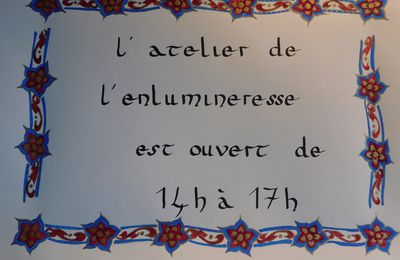 l'atelier de
l'enlumineresse
est ouvert de
14h à 17h